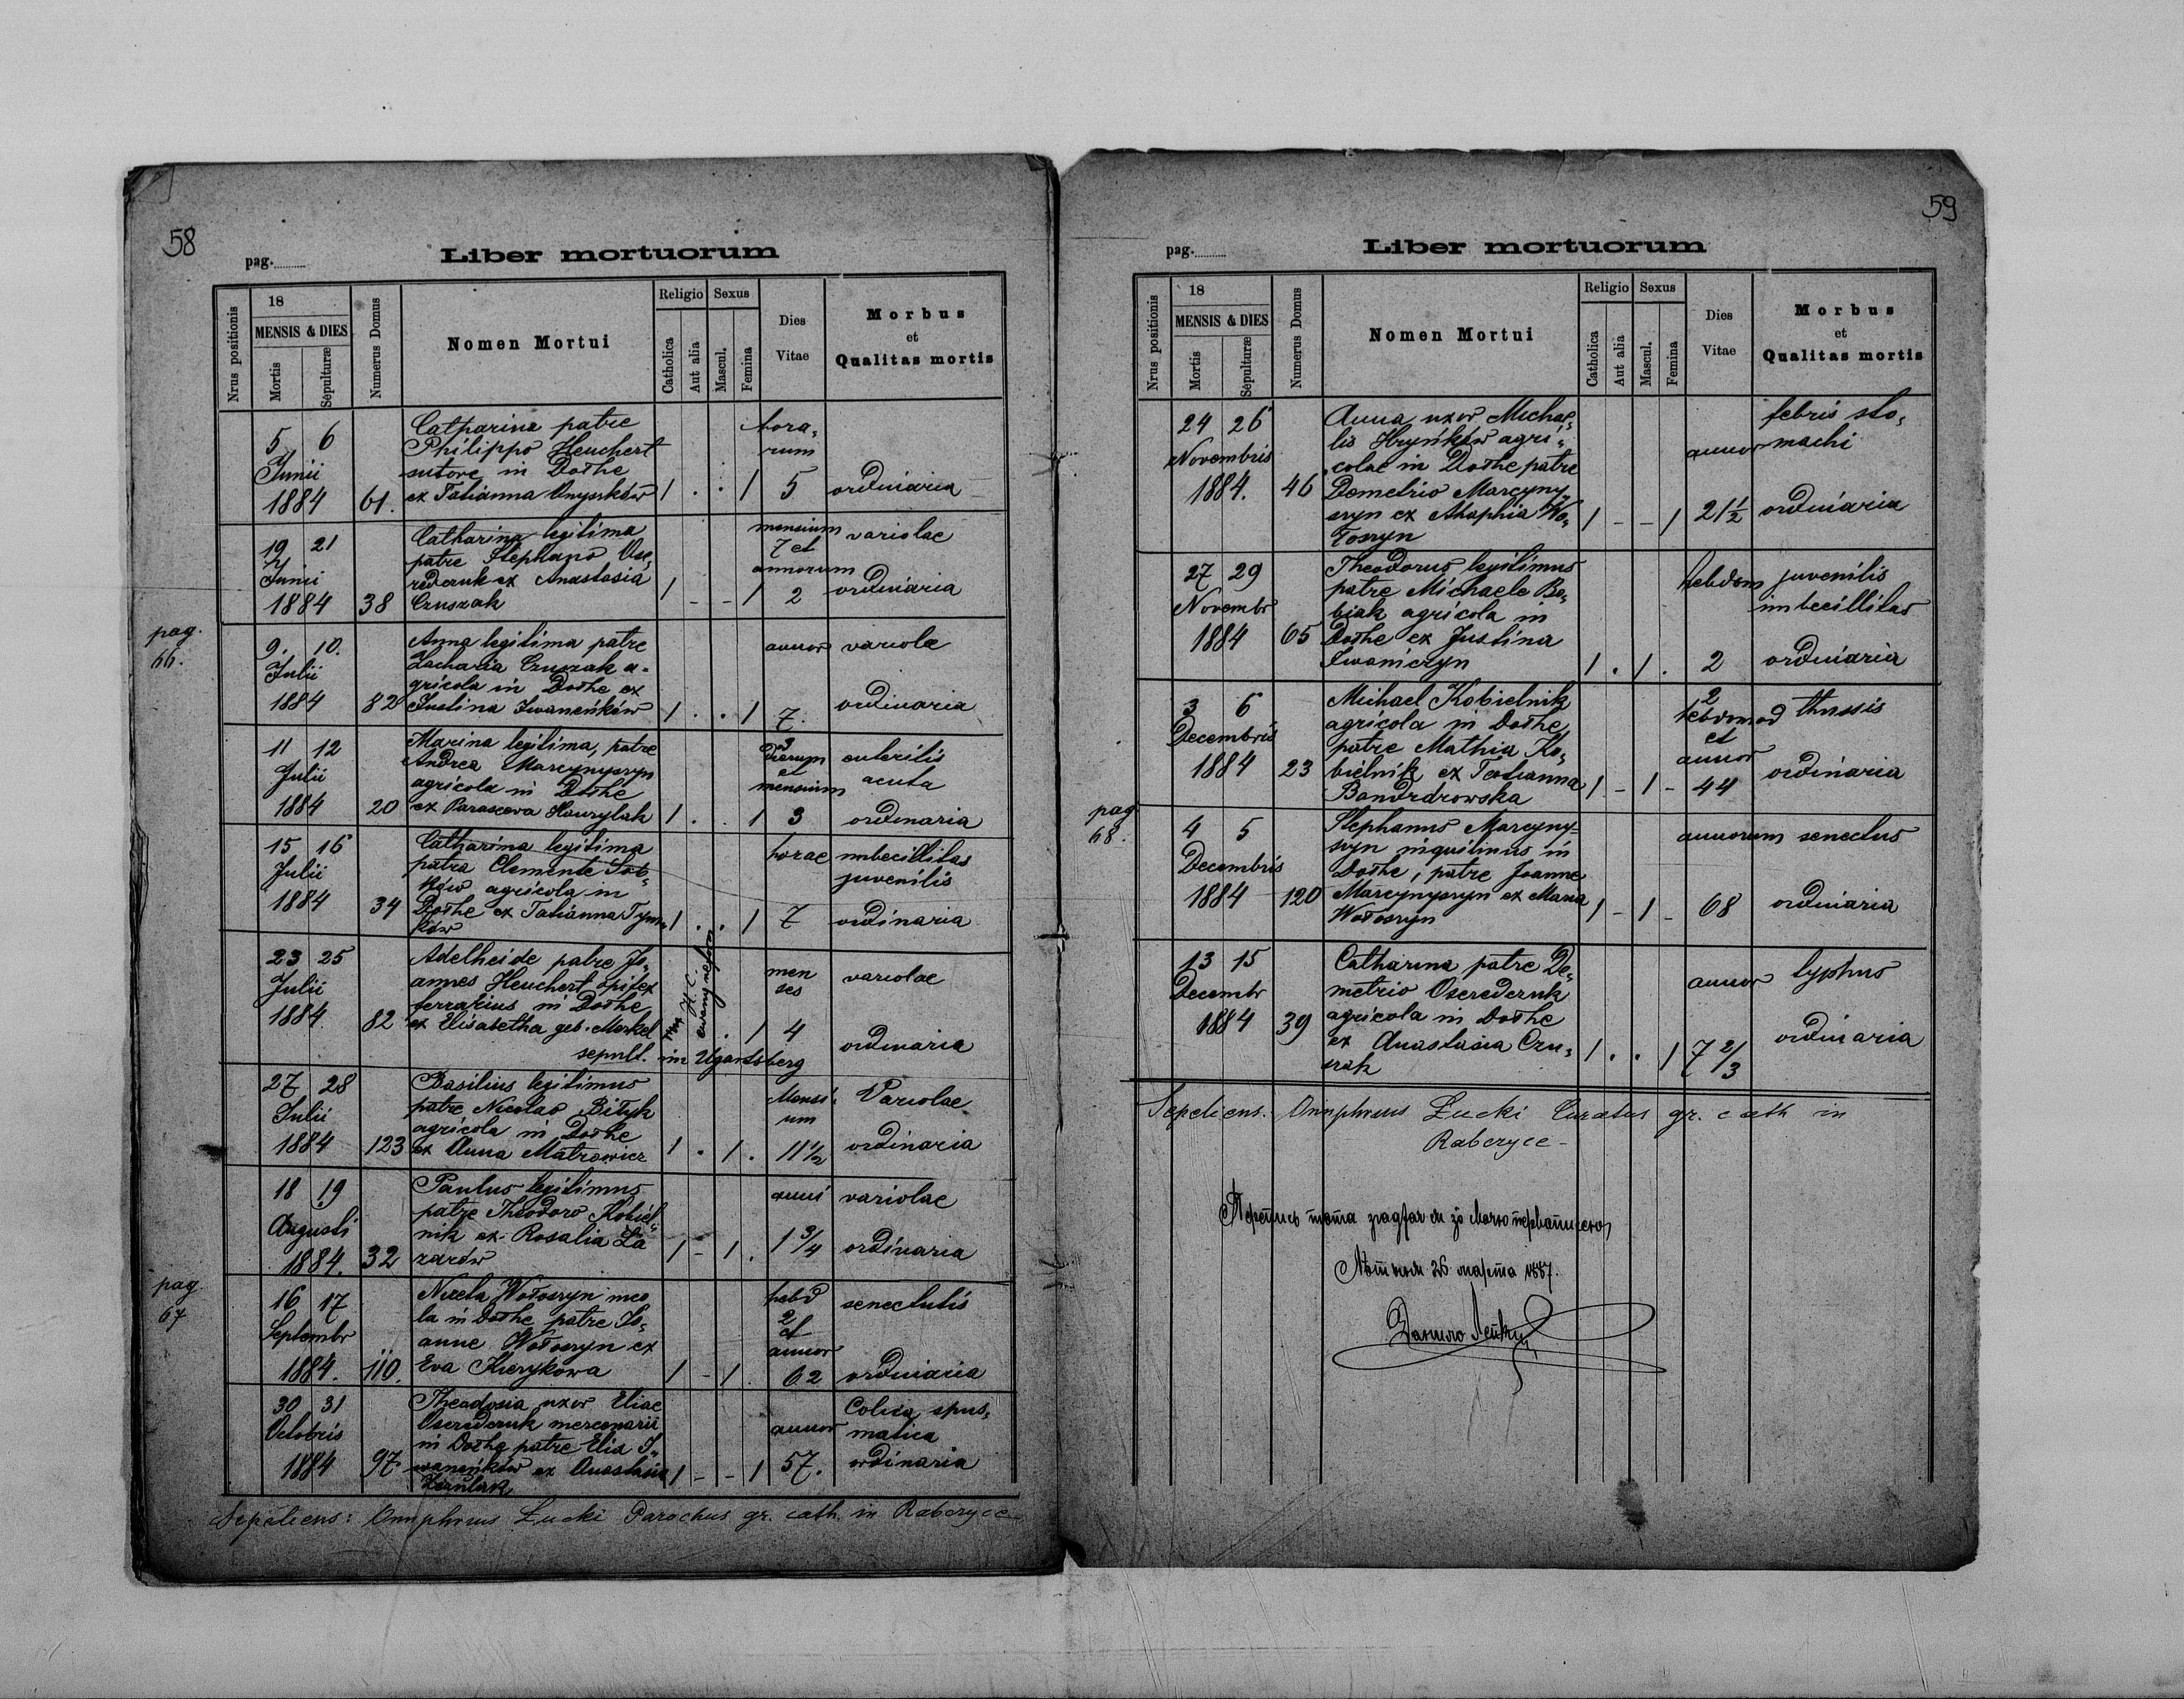 58
pag.
Liber mortuorum
Nrus positionis
18
MENSIS & DIES
Mortis
Sepulturæ
Numerus Domus
Nomen Mortui
Religio
Catholica
Aut alia
Sexus
Mascul.
Femina
Dies
Vitae
Morbus
et
Qualitas mortis
5 6
Junii
1884 61.
Catharina patre
Philippo Heuchert
sutore in Dołhe
ex Tatianna Onyszków
1 . . 1
hora-
rum
5 ordinaria
19 21
Junii
1884 38
Catharina legitima
patre Stephano Ose,
rederuk ex Anastasia
Czuszak
1 - - 1
mensium
7 et
annorum
2
variolae
ordinaria
pag.
66.
9. 10.
Julii
1884 82
Anna legitima patre
Zacharia Czuszak a-
gricola in Dołhe ex
Justina Iwaneńków
1 . . 1
annor
7.
variola
ordinaria
11 12
Julii
1884 20
Marina legitima, patre
Andrea Marcynyszyn
agricola in Dołhe
ex Parasceva Hawrylak
1 . . 1
3
dierum
et
mensium
3
enteritis
acuta
ordinaria
15 16
Julii
1884 34
Catharina legitima
patre Clemente Sot-
ków agricola in
Dołhe ex Tatianna Tym-
ków
1 . . 1
horae
7
imbecillitas
juvenilis
ordinaria
23 25
Julii
1884. 82
Adelheide patre Jo,
annes Heuchert opifex
ferrarius in Dołhe
ex Elisabetha geb. Merkel
sepult. in Ugartsberg
H. C.
. 1
men
ses
4
variolae
ordinaria
27 28
Julii
1884 123
Basilius legitimus
patre Nicolao Biłyk
agricola in Dołhe
ex Anna Matrowicz
1 . 1 .
Mensi-
um
11 1/2
Variolae
ordinaria
18 19
Augusti
1884. 32
Paulus legitimus
patre Theodoro Kobiel-
nik ex Rosalia La
zarów
1 - 1 .
anni
1 3/4
variolae
ordinaria
pag.
67
16 17
Septembr
1884. 110.
Wołoszyn inco
la in Dołhe patre Jo,
anne Wołoszyn ex
Eva Kierykowa
1 - 1 .
hebd
2
et
annor
62
senectutis
ordinaria
30 31
Octobris
1884 97
Theodosia uxor Eliae
Oserederuk mercenarii
in Dołhe patre Elia I,
waneńków ex Anastasia
1 - - 1
annor
57.
Colica spas,
matica
ordinaria
Sepeliens: Onuphrius Łucki Parochus gr. cath. in Rabczyce
59
pag.
Liber mortuorum
Nrus positionis
18
MENSIS & DIES
Mortis
Sepulturæ
Numerus Domus
Nomen Mortui
Religio
Catholica
Aut alia
Sexus
Mascul.
Femina
Dies
Vitae
Morbus
et
Qualitas mortis
24 26
Novembris
1884. 46
Anna uxor Michae-
lis Hryńków agri-
colae in Dołhe patre
Demetrio Marcyny-
szyn ex Ahaphia Wo,
łoszyn
1 - - 1
annor
21 1/2
febris sto,
machi
ordinaria
27 29
Novembr
1884 65
Theodorus legitimus
patre Michaele Ba,
biak agricola in
Dołhe ex Justina
Iwaniczyn
1 . 1 .
hebdom
2
juvenilis
imbecillitas
ordinaria
3 6
Decembris
1884 23
Michael Kobielnik
agricola in Dołhe,
patre Mathia Ko,
bielnik ex Tatianna
Bandrdrowska
1 - 1 -
2
hebdomad
et
annor
44
thussis
ordinaria
pag
68.
4 5
Decembris
1884 120
Stephanus Marcyny-
szyn inquilinus in
Dołhe, patre Joanne
Marcynyszyn ex Maria
Wołoszyn
1 - 1 -
annorum
68
senectus
ordinaria
13 15
Decembr
1884 39
Catharina patre De,
metrio Oserederuk
agricola in Dołhe
ex Anastasia Czu,
szak
1 . . 1
annor
7 2/3
typhus
ordinaria
Sepeliens. Onuphrius Łucki Curatus gr. cath in
Rabczyce -
26 марта 1887.
Данило